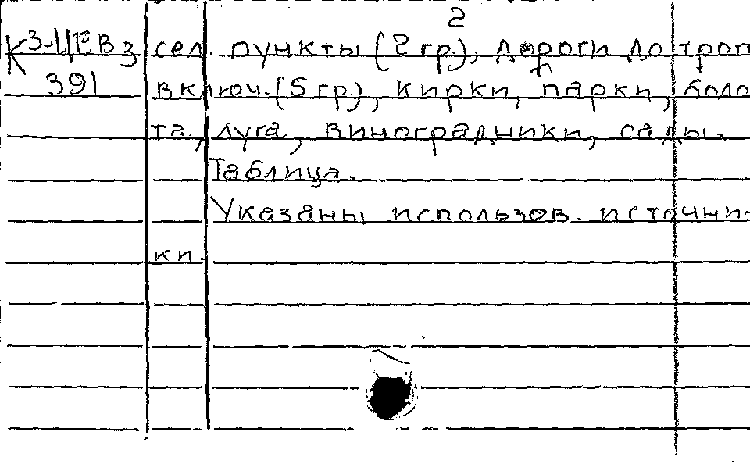 2
К 3-1/12 В 3 сел. пункты (2 гр.), дороги до троп
391 включ. (5 гр), кирки, парки, боло
та, луга, виноградники, сады.
Таблица.
Указаны использов. источни-
ки